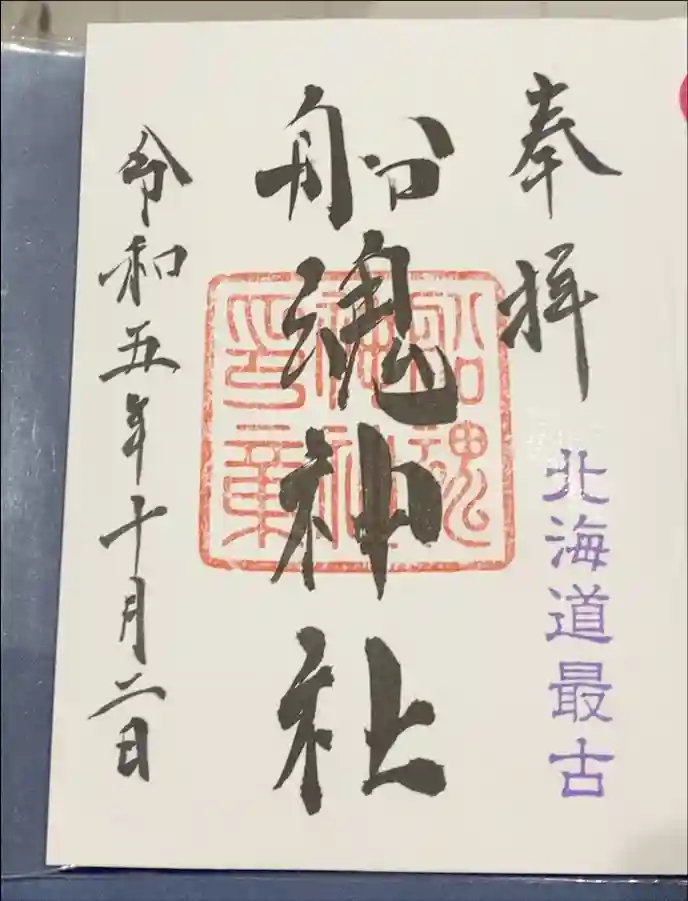 奉拝
北海道最古
船魂神社
船魂神社印章
令和五年十月二日